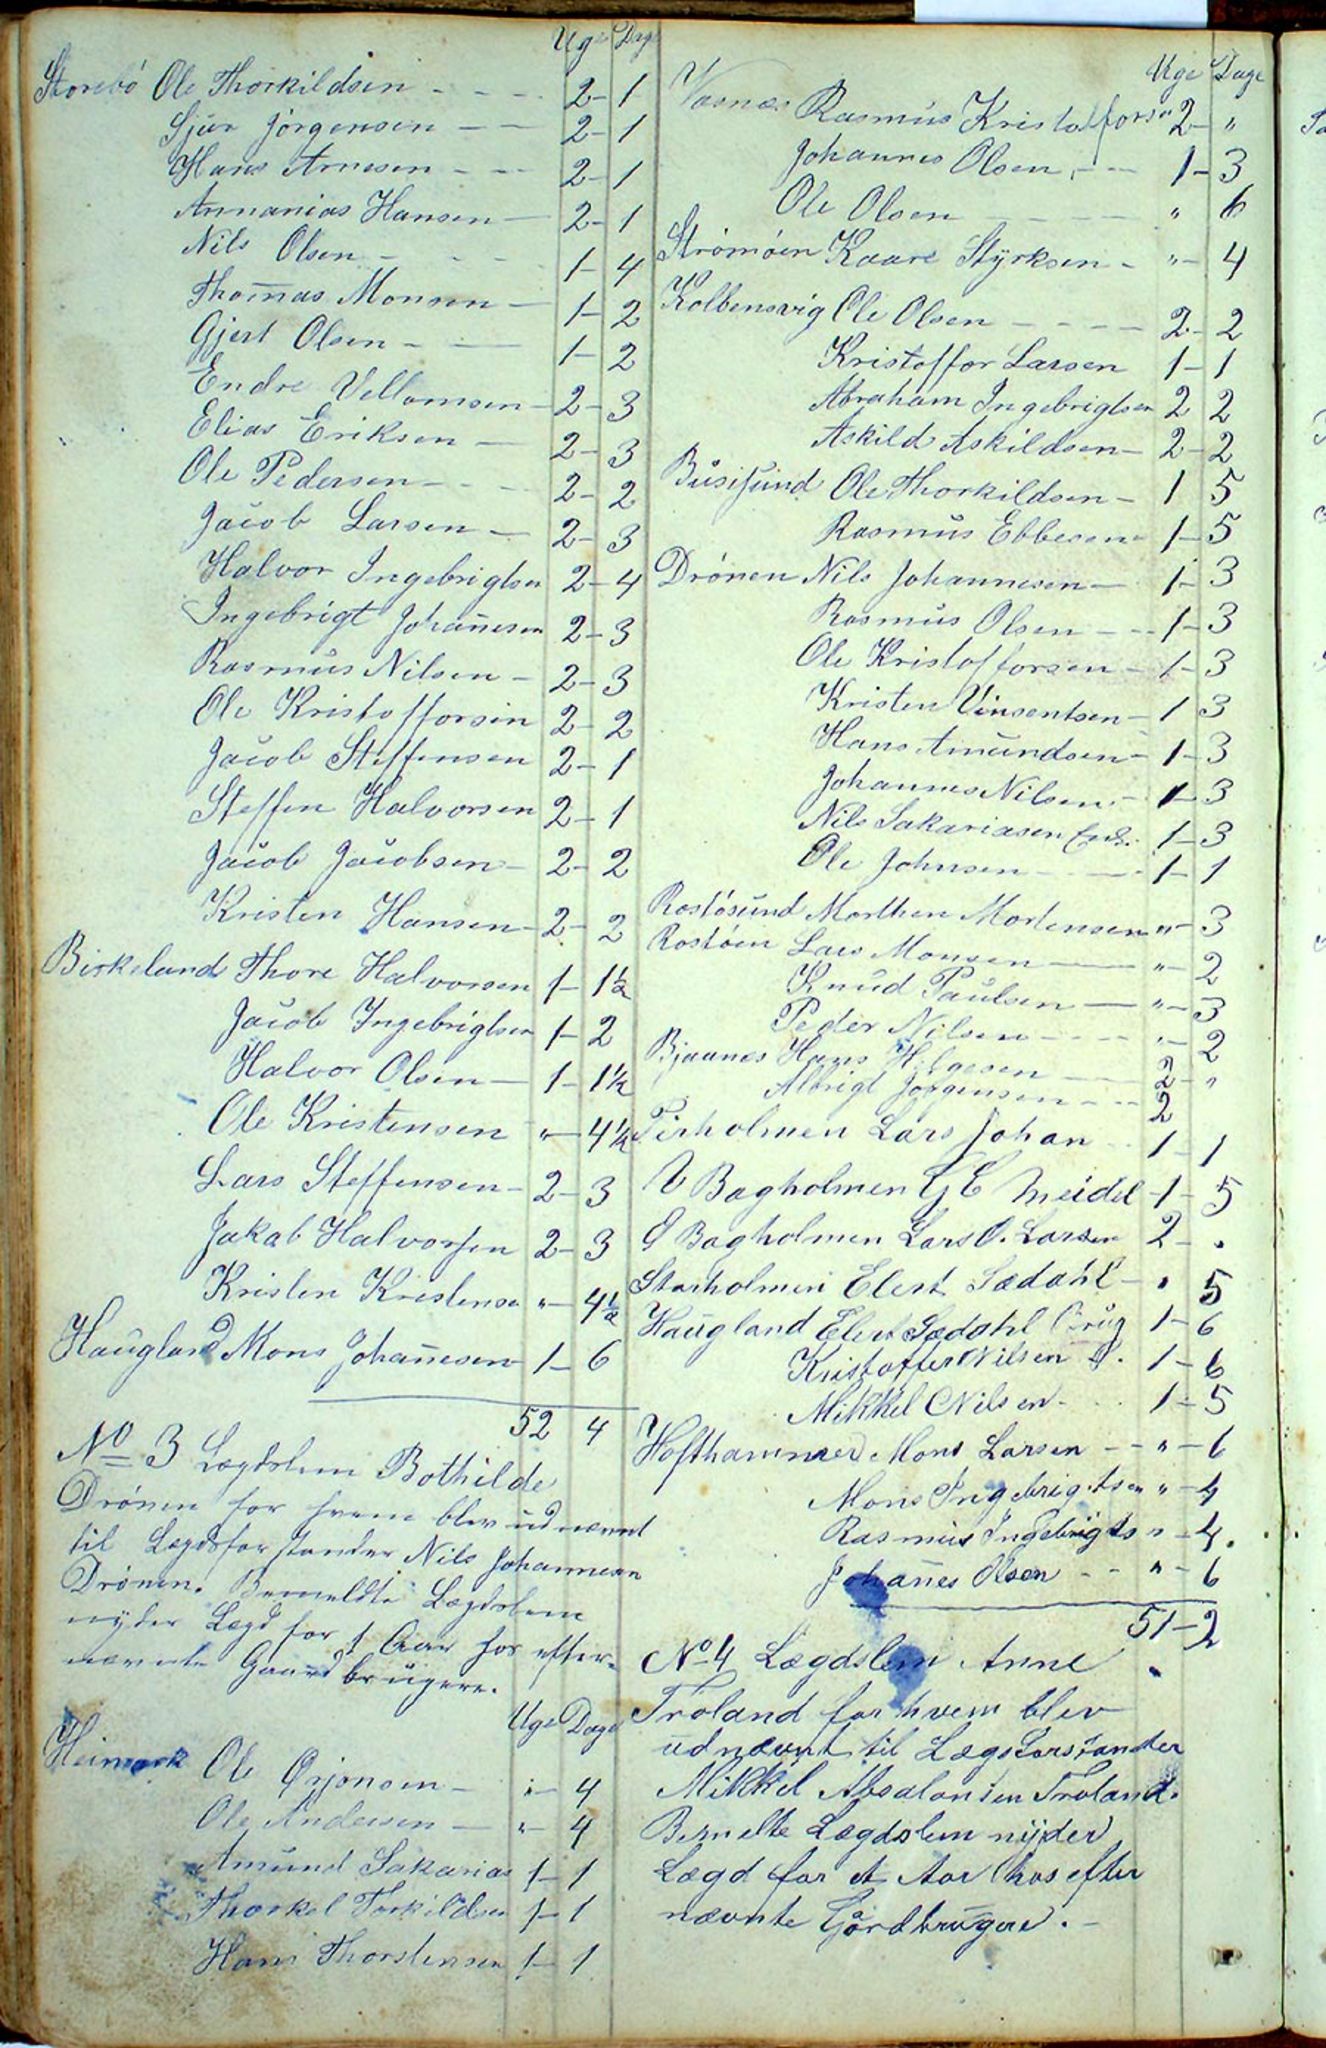 Uge Dage
Storebö Ole Thorkildsen - - - 2 - 1
Sjur Jörgensen - - 2 - 1
Hans Arnesen - - - 2 - 1
Annanias Hansen - 2 - 1
Nils Olsen - - - 1 - 4
Thom̄as Monsen - 1 - 2
Gjert Olsen - - 1 - 2
Endre Vellomsen - 2 - 3
Elias Eriksen - 2 - 3
Ole Pedersen - - - 2 - 2
Jacob Larsen - 2 - 3
Halvor Ingebrigtsen 2 - 4
Ingebrigt Johan̄esen 2 - 3
Rasmus Nilsen - 2 - 3
Ole Kristofforsen 2 - 2
Jacob Steffensen 2 - 1
Steffen Halvorsen 2 - 1
Jacob Jacobsen - 2 - 2
Kristen Hansen - 2 - 2
Birkeland Thore Halvorsen 1 - 1½
Jacob Ingebrigtsen 1 - 2
Halvor Olsen - 1 - 1½
Ole Kristensen " - 4½
Lars Steffensen - 2 - 3
Jakob Halvorsen 2 - 3
Kristen Kristense " - 4½
Haugland Mons Johan̄esen 1 - 6
52 4
No 3 Lægdslem Bothilde
Drönen for hvem blev udnævnt
til Lægdsforstander Nils Johannesen
Drönen. Bemeldte Lægdslem
nyder Lægd for 1 Aar hos efter-
nævnte Gaardbrugere.
Uge Dage
Heimark Ole Örjansen - " - 4
Ole Andersen - " - 4
Amund Sakarias 1 - 1
Thorkel Torkildsen 1 - 1
Hans Thorstensen 1 - 1
Uge Dage
Vasnæs Rasmus Kristofforsn 2 - "
Johannes Olsen - - 1 - 3
Ole Olsen - - - " 6
Strömöen Kaare Styrksen - " - 4
Kolbensvig Ole Olsen - - - - 2 - 2
Kristoffor Larsen 1 - 1
Abraham Ingebrigtsen 2 2
Askild Askildsen - 2 - 2
Busesund Ole Thorkildsen - 1 5
Rasmus Ebbesen 1 - 5
Drönen Nils Johannesen - 1 - 3
Rasmus Olsen - - 1 - 3
Ole Kristofforsen - 1 - 3
Kristen Vinsentsen - 1 3
Hans Amundsen - 1 - 3
Johannes Nilsen - 1 - 3
Nils Sakariasen Enk. 1 - 3
Ole Johnsen - - 1 - 1
Rostösund Morthen Mortensen " - 3
Rostöen Lars Monsen - " - 2
Knud Paulsen - " - 3
Peder Nilsen - - - " - 2
Bjaanæs Hans Helgesen - 2 - "
Albrigt Jörgensen - - 2
Pirholmen Lars Johan - 1 - 1
V Bagholmen G E Meidel - 1 - 5
Ö Bagholmen Lars O. Larsen 2 - .
Storholmen Elert Sædahl - " 5
Haugland Elert Sædahl Brug 1 - 6
Kristoffer Nilsen D. 1 - 6
Mikkel Nilsen - - 1 - 5
Hofthammer Mons Larsen - - " - 6
Mons Ingebrigtsen " - 4
Rasmus Ingebrigts " - 4.
Johan̄es Olsen - - " - 6
51 - 2
No 4 Lægdslem Anne
Troland for hvem blev
udnævnt til Lægsforstander
Mikkel Absalonsen Troland.
Bemelte Lægdslem nyder
Lægd for et Aar hos efter
nævnte Gårdbrugere. -